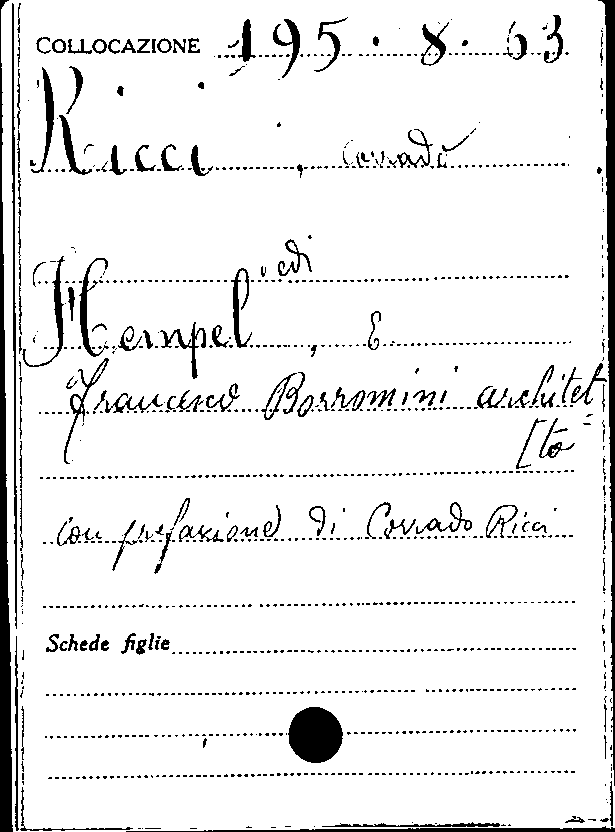 COLLOCAZIONE 195. 8. 63
Ricci, Corrado
vedi
Hempel, E.
Francesco Borromini architet=
[to
con prefazione di Corrado Ricci
Schede figlie